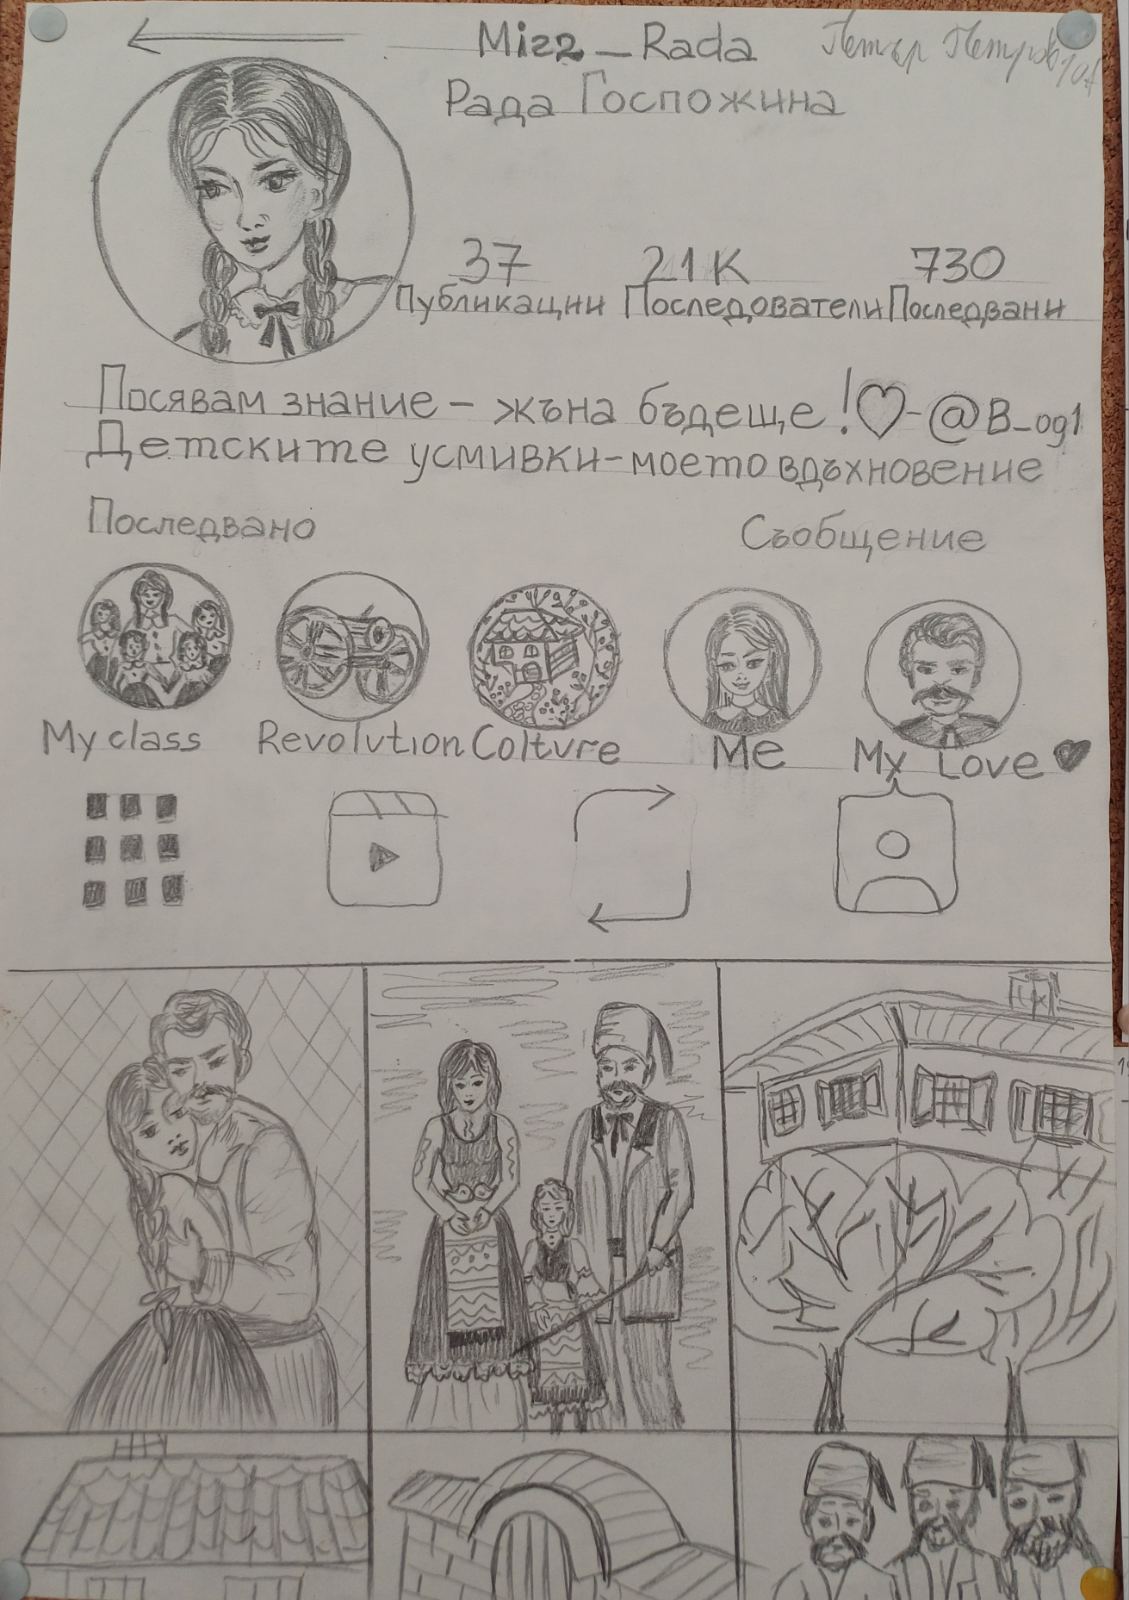 Mizz_Rada
Петър Петров 10
Рада Госпожина
37 21K 730
Публикации Последователи Последвани
Посявам знание – жъна бъдеще!♡-@B_og1
Детските усмивки-моето вдъхновение
Последвано Съобщение
My class Revolution Colture Me My Love ♥